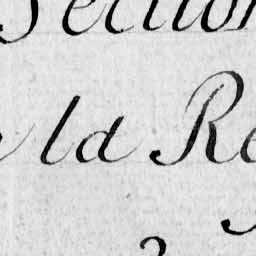 Section
la Re